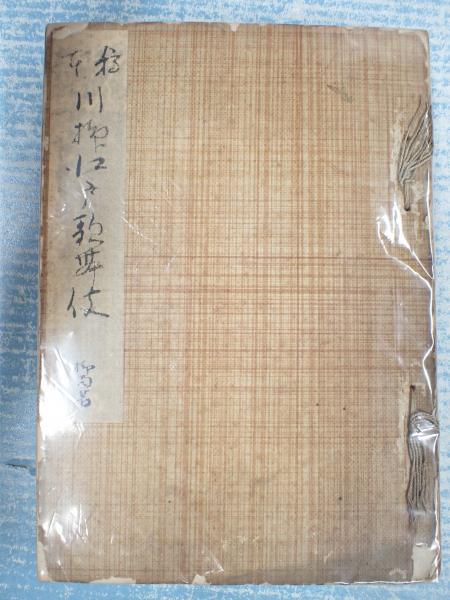 稿本
川柳江戸歌舞伎